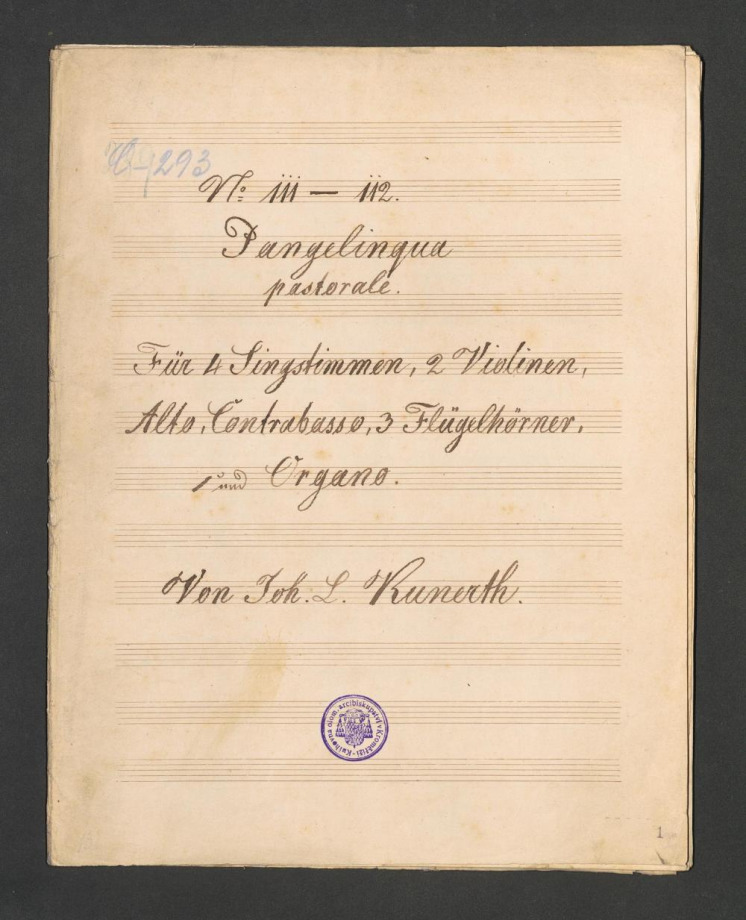 293
№ 111 — 112.
Pangelingua
pastorale.
Für 4 Singstimmen, 2 Violinen,
Alto, Contrabasso, 3 Flügelhörner,
und Organo.
Von Joh. L. Kunerth.
Knihovna olom. arcibiskupství v Kroměříži
1